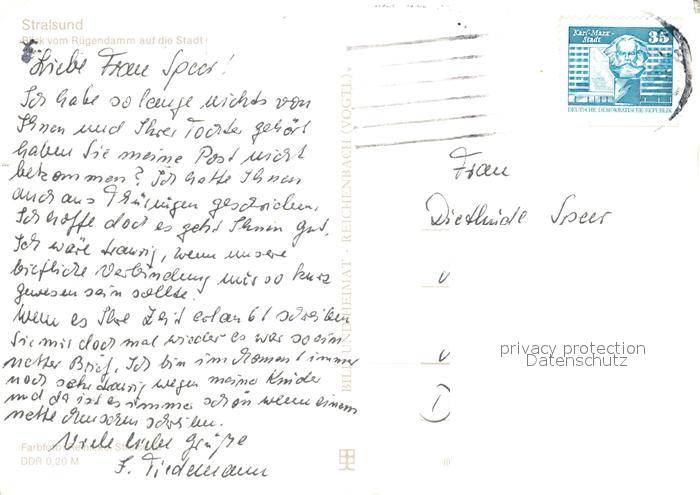 Stralsund
Blick vom Rügendamm auf die Stadt
Liebe Frau Speer!
Ich habe so lange nichts von
Ihnen und Ihrer Tochter gehört
haben Sie meine Post nicht
bekommen? Ich hatte Ihnen
auch aus Thüringen geschrieben.
Ich hoffe doch es geht Ihnen gut.
Ich wäre traurig, wenn unsere
briefliche Verbindung nur so kurz
gewesen sein sollte.
Wenn es Ihre Zeit erlaubt schreiben
Sie mir doch mal wieder es war so ein
netter Brief. Ich bin im Moment immer
noch sehr traurig wegen meine Kinder
und da ist es immer schön wenn einem
nette Menschen schreiben.
Viele liebe Grüße
F. Tiedemann
Farbfoto
DDR 0,20 M
BILD UND HEIMAT · REICHENBACH (VOGTL)
Karl-Marx-
Stadt
35
DEUTSCHE DEMOKRATISCHE REPUBLIK
Frau
Diethilde Speer
privacy protection
Datenschutz